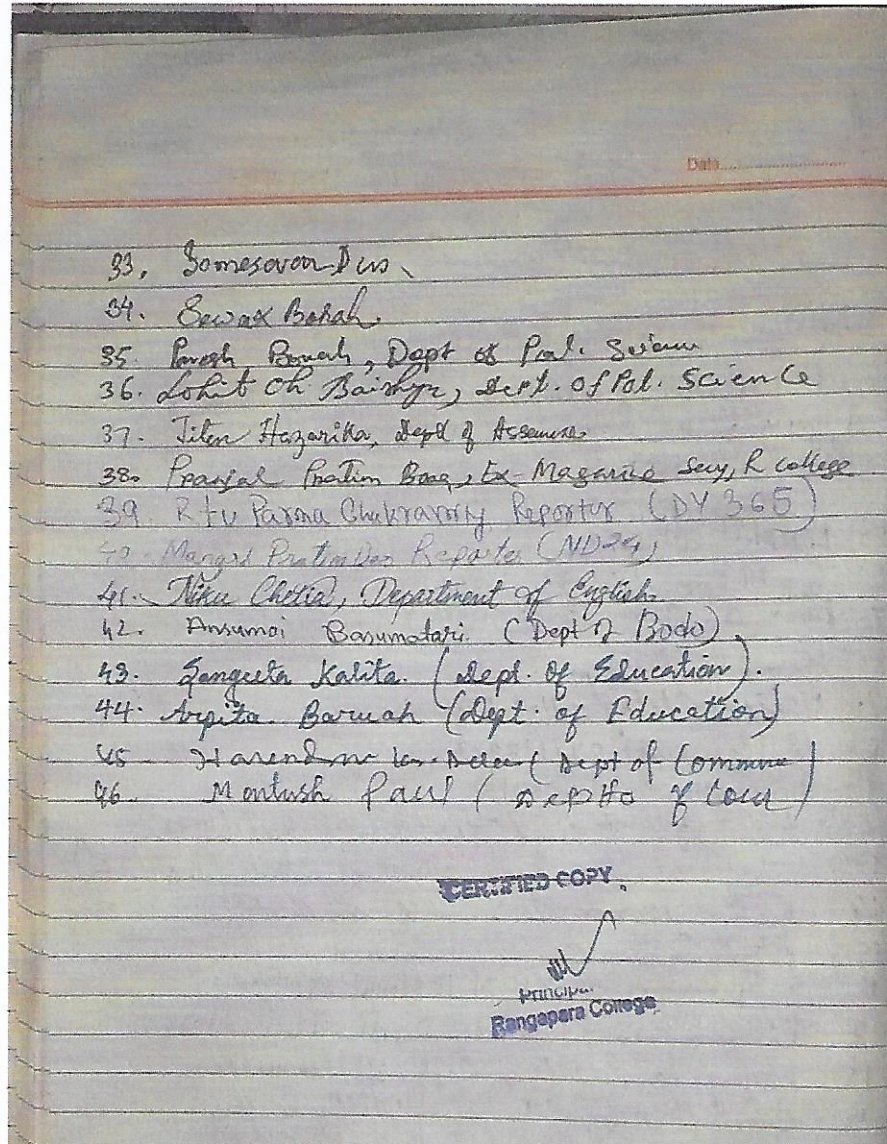 Date
33. Somesovar Das
34. Sewak Borah
35. Paresh Borah, Dept of Pol. Science
36. Lohit Ch. Baishya, Dept. of Pol. Science
37. Jiten Hazarika, Dept of Assamese
38. Pranjal Pratim Bora, Ex-Magazine Secy, R College
39 Ritu Parna Chakravorty Reporter (DY 365)
40. Pratim Das Reporter (ND24)
41. Niku Chetia, Department of English.
42. Ansumai Basumatari (Dept of Bodo)
43. Sangeeta Kalita. (Dept. of Education).
44. Arpita Baruah (Dept. of Education)
45 Harendra Kr. Deka (Dept of Commerce)
46. Paul (
CERTIFIED COPY
Principal
Rangapara College